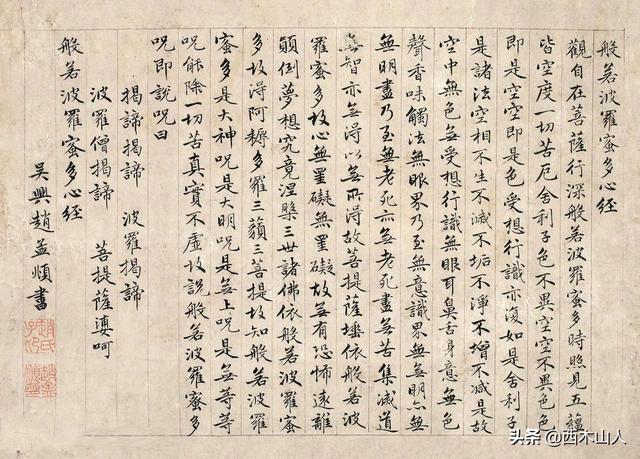 般若波羅蜜多心經
觀自在菩薩行深般若波羅蜜多時照見五蘊
皆空度一切苦厄舍利子色不異空空不異色色
即是空空即是色受想行識亦復如是舍利子
是諸法空相不生不滅不垢不淨不增不減是故
空中無色無受想行識無眼耳鼻舌身意無色
聲香味觸法無眼界乃至無意識界無無明亦無
無明盡乃至無老死亦無老死盡無苦集滅道
無智亦無得以無所得故菩提薩埵依般若波
羅蜜多故心無罣礙無罣礙故無有恐怖遠離
顛倒夢想究竟涅槃三世諸佛依般若波羅蜜
多故得阿耨多羅三藐三菩提故知般若波羅
蜜多是大神呪是大明呪是無上呪是無等等
呪能除一切苦真實不虛故說般若波羅蜜多
呪即說呪曰
揭諦揭諦 波羅揭諦
波羅僧揭諦 菩提薩婆呵
般若波羅蜜多心經
吳興趙孟頫書
趙氏子昂
头条 @西木山人